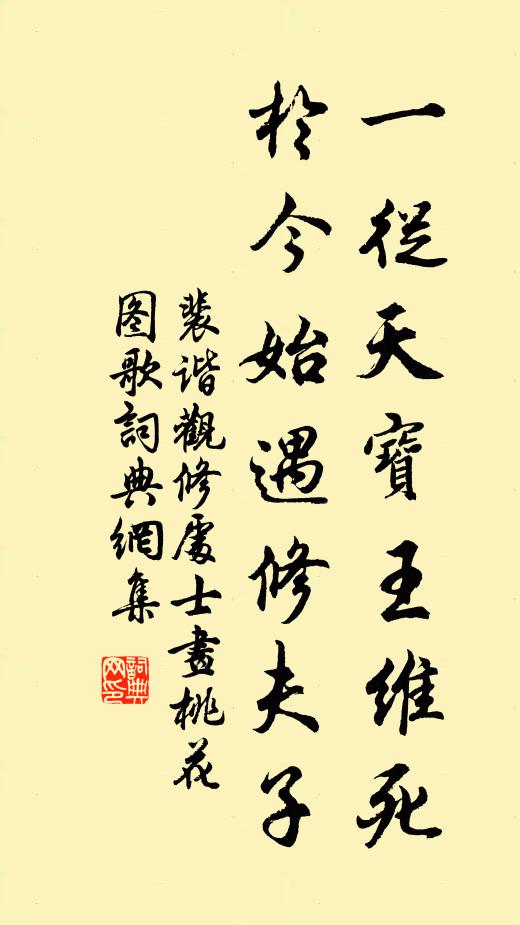 一從天寶王維死
於今始遇修夫子
裴谐觀修處士畫桃花
图歌詞典網集
詞典
网印